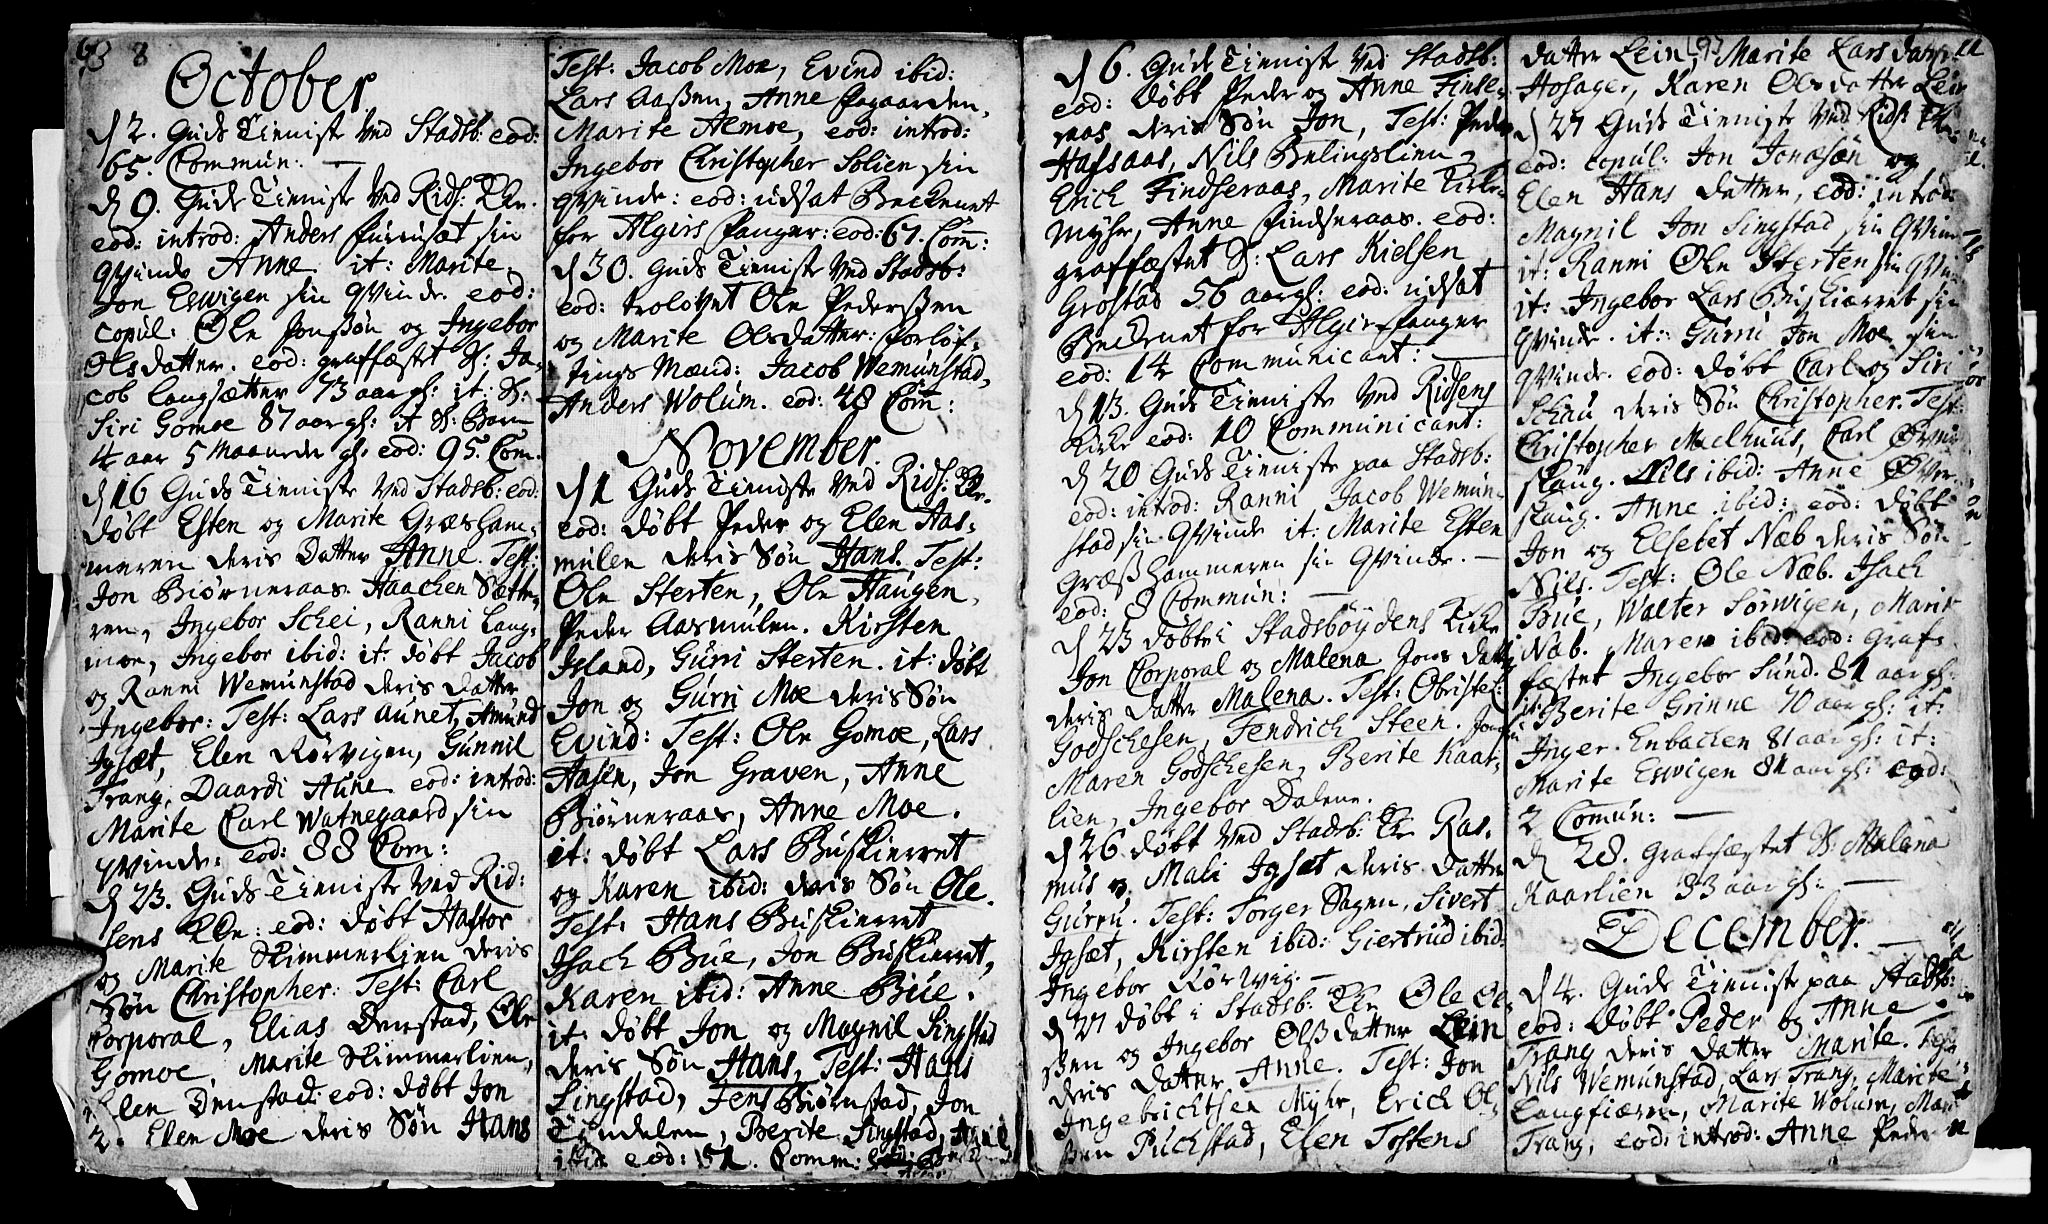 October
d 2. Guds Tieniste ved Stadsb: eod:
65. Commun:
d 9. Guds Tieniste ved Rids: Kke.
eod: introd: Anders Furruset sin
qvinde Anne it: Marite
Jon Eswigen sin qvinde. eod:
copul: Ole Jonssøn og Ingebor
Olsdatter. eod: graffæstet S: Ja-
cob Langsætter 73 aar gl: it: S:
Siri Gomoe 87 aar gl: it S: Barn
4 aar 5 maaneder gl. eod: 95. Com.
d 16 Guds Tieniste ved Stadsb: eod:
døbt Esten og Marite Græsham-
meren deris Datter Anne. Test:
Jon Biørneraas. Haachen Sætte-
ren, Ingebor Schei, Ranni Lang-
moe, Ingebor ibid: it: døbt Jacob
og Ranni Wemunstad deris datter
Ingebor: Test: Lars Aunet, Amund
Igsæt, Elen Rørvigen, Gunnil
Trang, Daardi Aune eod: introd:
Marite Carl Watnegaard sin
qvinde: eod: 88 Com:
d 23. Guds Tieniste ved Rid-
sens Kke: eod: døbt Hastor
og Marite Skimmerlien deris
Søn Christopher: Test: Carl
Corporal, Elias Denstad, Ole
Gomoe, Marite Skimmerlien,
Elen Denstad: eod: døbt Jon
Elen Moe deris Søn Hans
Test: Jacob Moe, Evind ibid:
Lars Aassen, Anne Pegaarden,
Marite Aemoe, eod: introd:
Ingebor Christopher Solien sin
qvinde: eod: udsat Beckenet
for Algirs Fanger: eod: 67. Com:
d 30. Guds Tieniste ved Stadsb:
eod: trolovet Ole Pederssen
og Marite Olsdatter: forløf-
tings Mænd: Jacob Wemunstad,
Anders Wolum. eod: 48 Com:
November.
d 1 Guds Tieniste ved Rids: Kke.
eod: døbt Peder og Elen Aas-
mulen deris Søn Hans. Test:
Ole Sterten, Ole Haugen,
Peder Aasmulen. Kirsten
Island, Gurri Sterten. it: døbt
Jon og Gurri Moe deris Søn
Evind: Test: Ole Gomoe, Lars
Aasen, Jon Graven, Anne
Biørneraas, Anne Moe.
it: døbt Lars Buskierret
og Karen ibid: deris Søn Ole.
Test: Hans Buskierret
Isach Bue, Jon Buskierret,
Karen ibid: Anne Bue.
it: døbt Jon og Magnil Singstad
deris Søn Hans, Test: Hans
Singstad, Jens Biørnstad, Jon
Tøndelen, Berite Singstad,
ibid eod: 51. Comm:
d 6. Guds Tieniste ved Stadsb:
eod: døbt Peder og Anne Finse-
raas deris Søn Jon, Test: Peder
Hafsaas, Nils Belingslien,
Erich Findseraas, Marite
Myhr, Anne Findseraas. eod:
graffæstet S: Lars Kielsen
Grøstad 56 aar gl: eod: udsat
Beckenet for Algirs Fanger
eod: 14 Communicant:
d 13. Guds Tieniste ved Ridsens
Kirke eod: 10 Communicant:
d 20 Guds Tieniste paa Stadsb:
eod: introd: Ranni Jacob Wemun-
stad sin Qvinde it: Marite Esten
Græsshammeren sin Qvinde.
eod: 8 Commun:
d 23 døbt i Stadsbøydens Kirke
Jon Corporal og Malena Jons datter
deris Datter Malena. Test: Obristel:
Godschesen, Fendrich Steen.
Maren Godschesen, Berite Kaar-
lien, Ingebor Dalene.
d 26 døbt ved Stadsb: Kke Ras-
mus og Mali Igset deris Datter
Guru. Test: Torger Sagen, Sivert
Igsæt, Kirsten ibid: Giertrud ibid:
Ingebor Rørwig.
d 27 døbt i Stadsb: Kke Ole Ol-
ssen og Ingebor Olssdatter Lein
deris Datter Anne. Test: Jon
Ingebrichtsen Myhr, Erich Ol-
ssen Puchstad, Elen Tostens
datter Lein, Marite Lars datter
Hosager, Karen Olsdatter Lein
d 27 Guds Tieniste ved Rids: Kke:
eod: copul: Jon Jonæsøn og
Elen Hans datter, eod: introd:
Magnil Jon Singstad sin Qvinde
it: Ranni Ole Sterten sin Qvin
it: Ingebor Lars Buskierret sin
qvinde. it: Gurri Jon Moe sin
qvinde. eod: døbt Carl og Siri
Schau deris Søn Christopher. Test:
Christopher Melhuus, Carl
slaug. Nils ibid: Anne Over-
slaug. Anne ibid: eod: døbt
Jon og Elsebet Næb deris Søn
Nils. Test: Ole Næb. Isach
Bue, Walter Sørwigen, Marit
Næb. Maren ibid: eod: graf-
fæstet Ingebor Sund. 81 aar gl:
it: Berite Grinne 70 aar gl: it:
Inger Enbachen 81 aar gl: it:
Marite Eswigen 81 aar gl: eod:
2 Comun:
d 28. Grafsæstet S: Malena
Kaarlien 33 aar gl:
December.
d 4. Guds Tieniste paa Stadsb:
eod: døbt Peder og Anne
Trang deris datter Marite. Test:
Nils Wemunstad, Lars Trang, Marite
Langfiæren, Marite Wolum,
Trang, eod: introd: Anne Peder